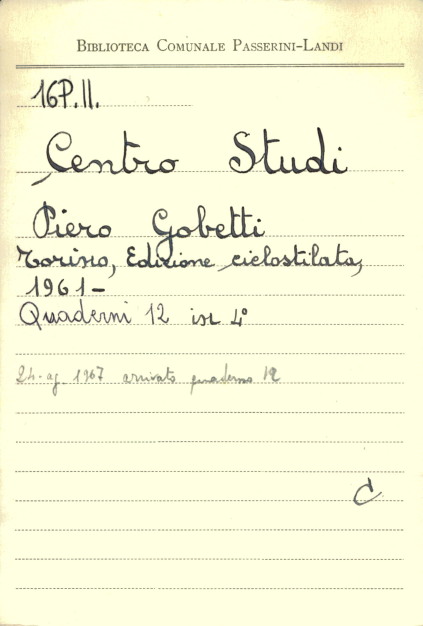 BIBLIOTECA COMUNALE PASSERINI-LANDI
16P.II.
Centro Studi
Piero Gobetti
Torino, Edizione ciclostilata,
1961-
Quaderni 12 in 4°
24-ag. 1967 arrivato quaderno 12
C